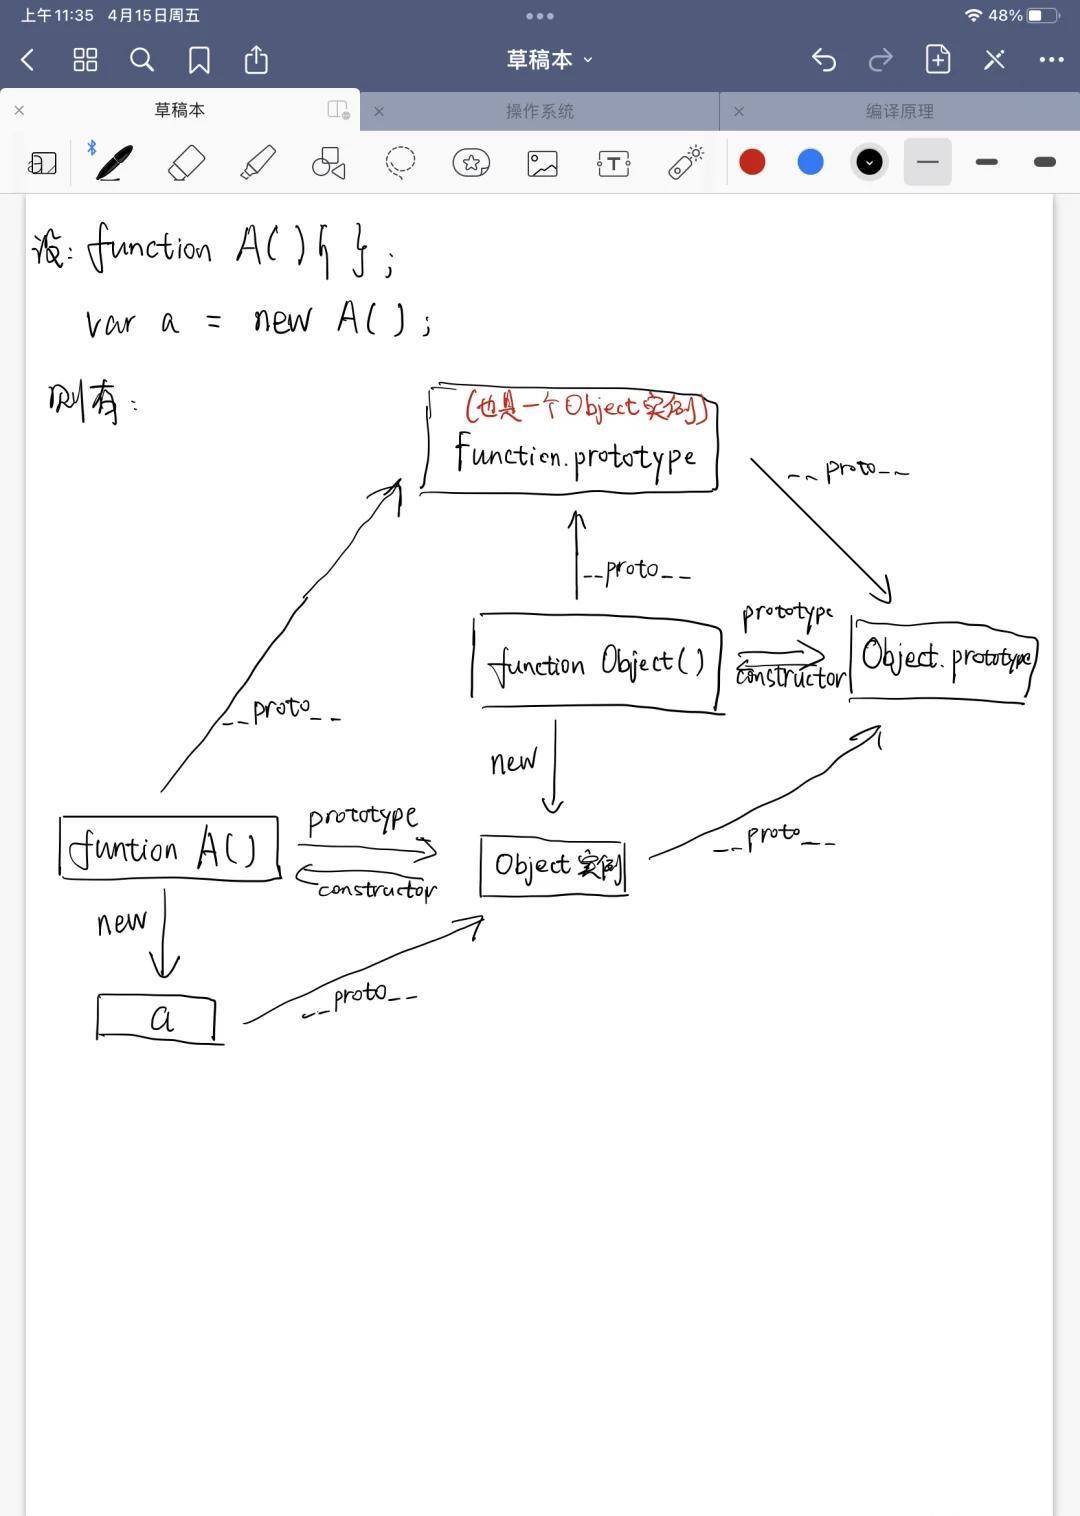 上午11:35 4月15日周五
48%
草稿本
草稿本
操作系统
编译原理
T
设: function A(){ };
var a = new A();
则有:
(也是一个Object实例)
Function.prototype
__proto__
__proto__
prototype
function Object()
Object.prototype
constructor
__proto__
new
prototype
funtion A()
__proto__
Object 实例
constructor
new
__proto__
a